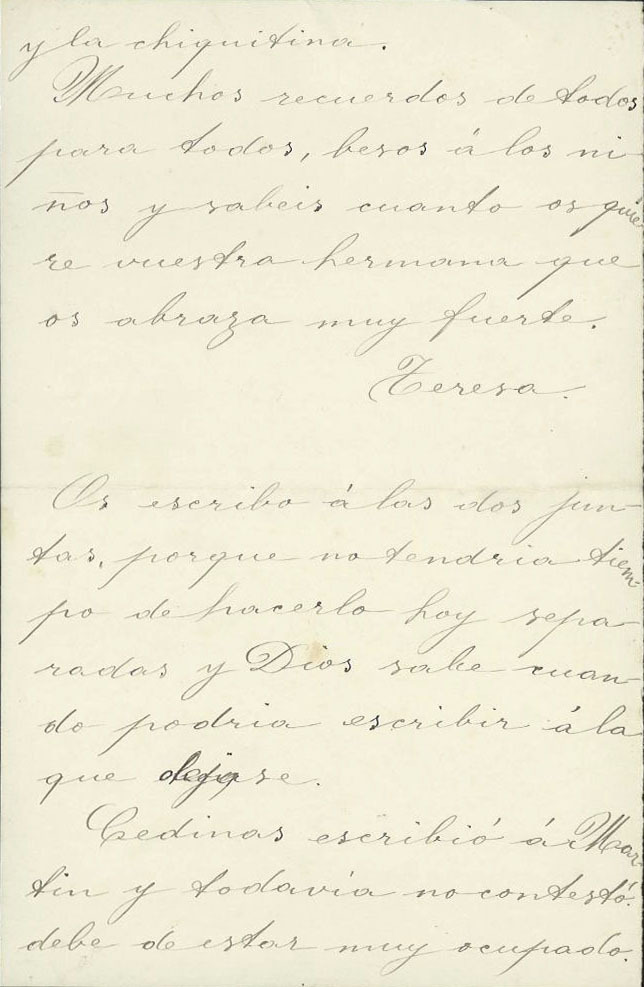 y la chiquitina.
Muchos recuerdos de todos
para todos, besos á los ni-
ños y sabeis cuanto os quie-
re vuestra hermana que
os abraza muy fuerte.
Teresa.
Os escribo á las dos jun-
tas, porque no tendria tiem-
po de hacerlo hoy sepa-
radas y Dios sabe cuan-
do podria escribir á la
que dejase.
Cedinas escribió á Mar-
tin y todavía no contestó.
debe de estar muy ocupado.